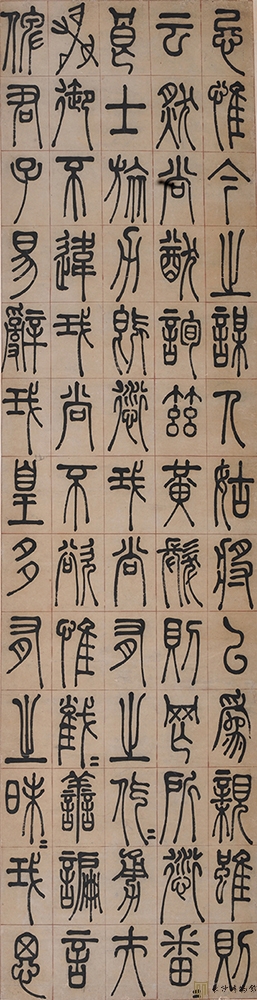 忌惟今之謀人姑將以為親雖則
云然尚猷詢茲黃髮則罔所愆番
良士旅力既愆我尚有之仡〻勇夫
射御不違我尚不欲惟截〻善諞言
俾君子易辭我皇多有之昧〻我思
長沙博物館